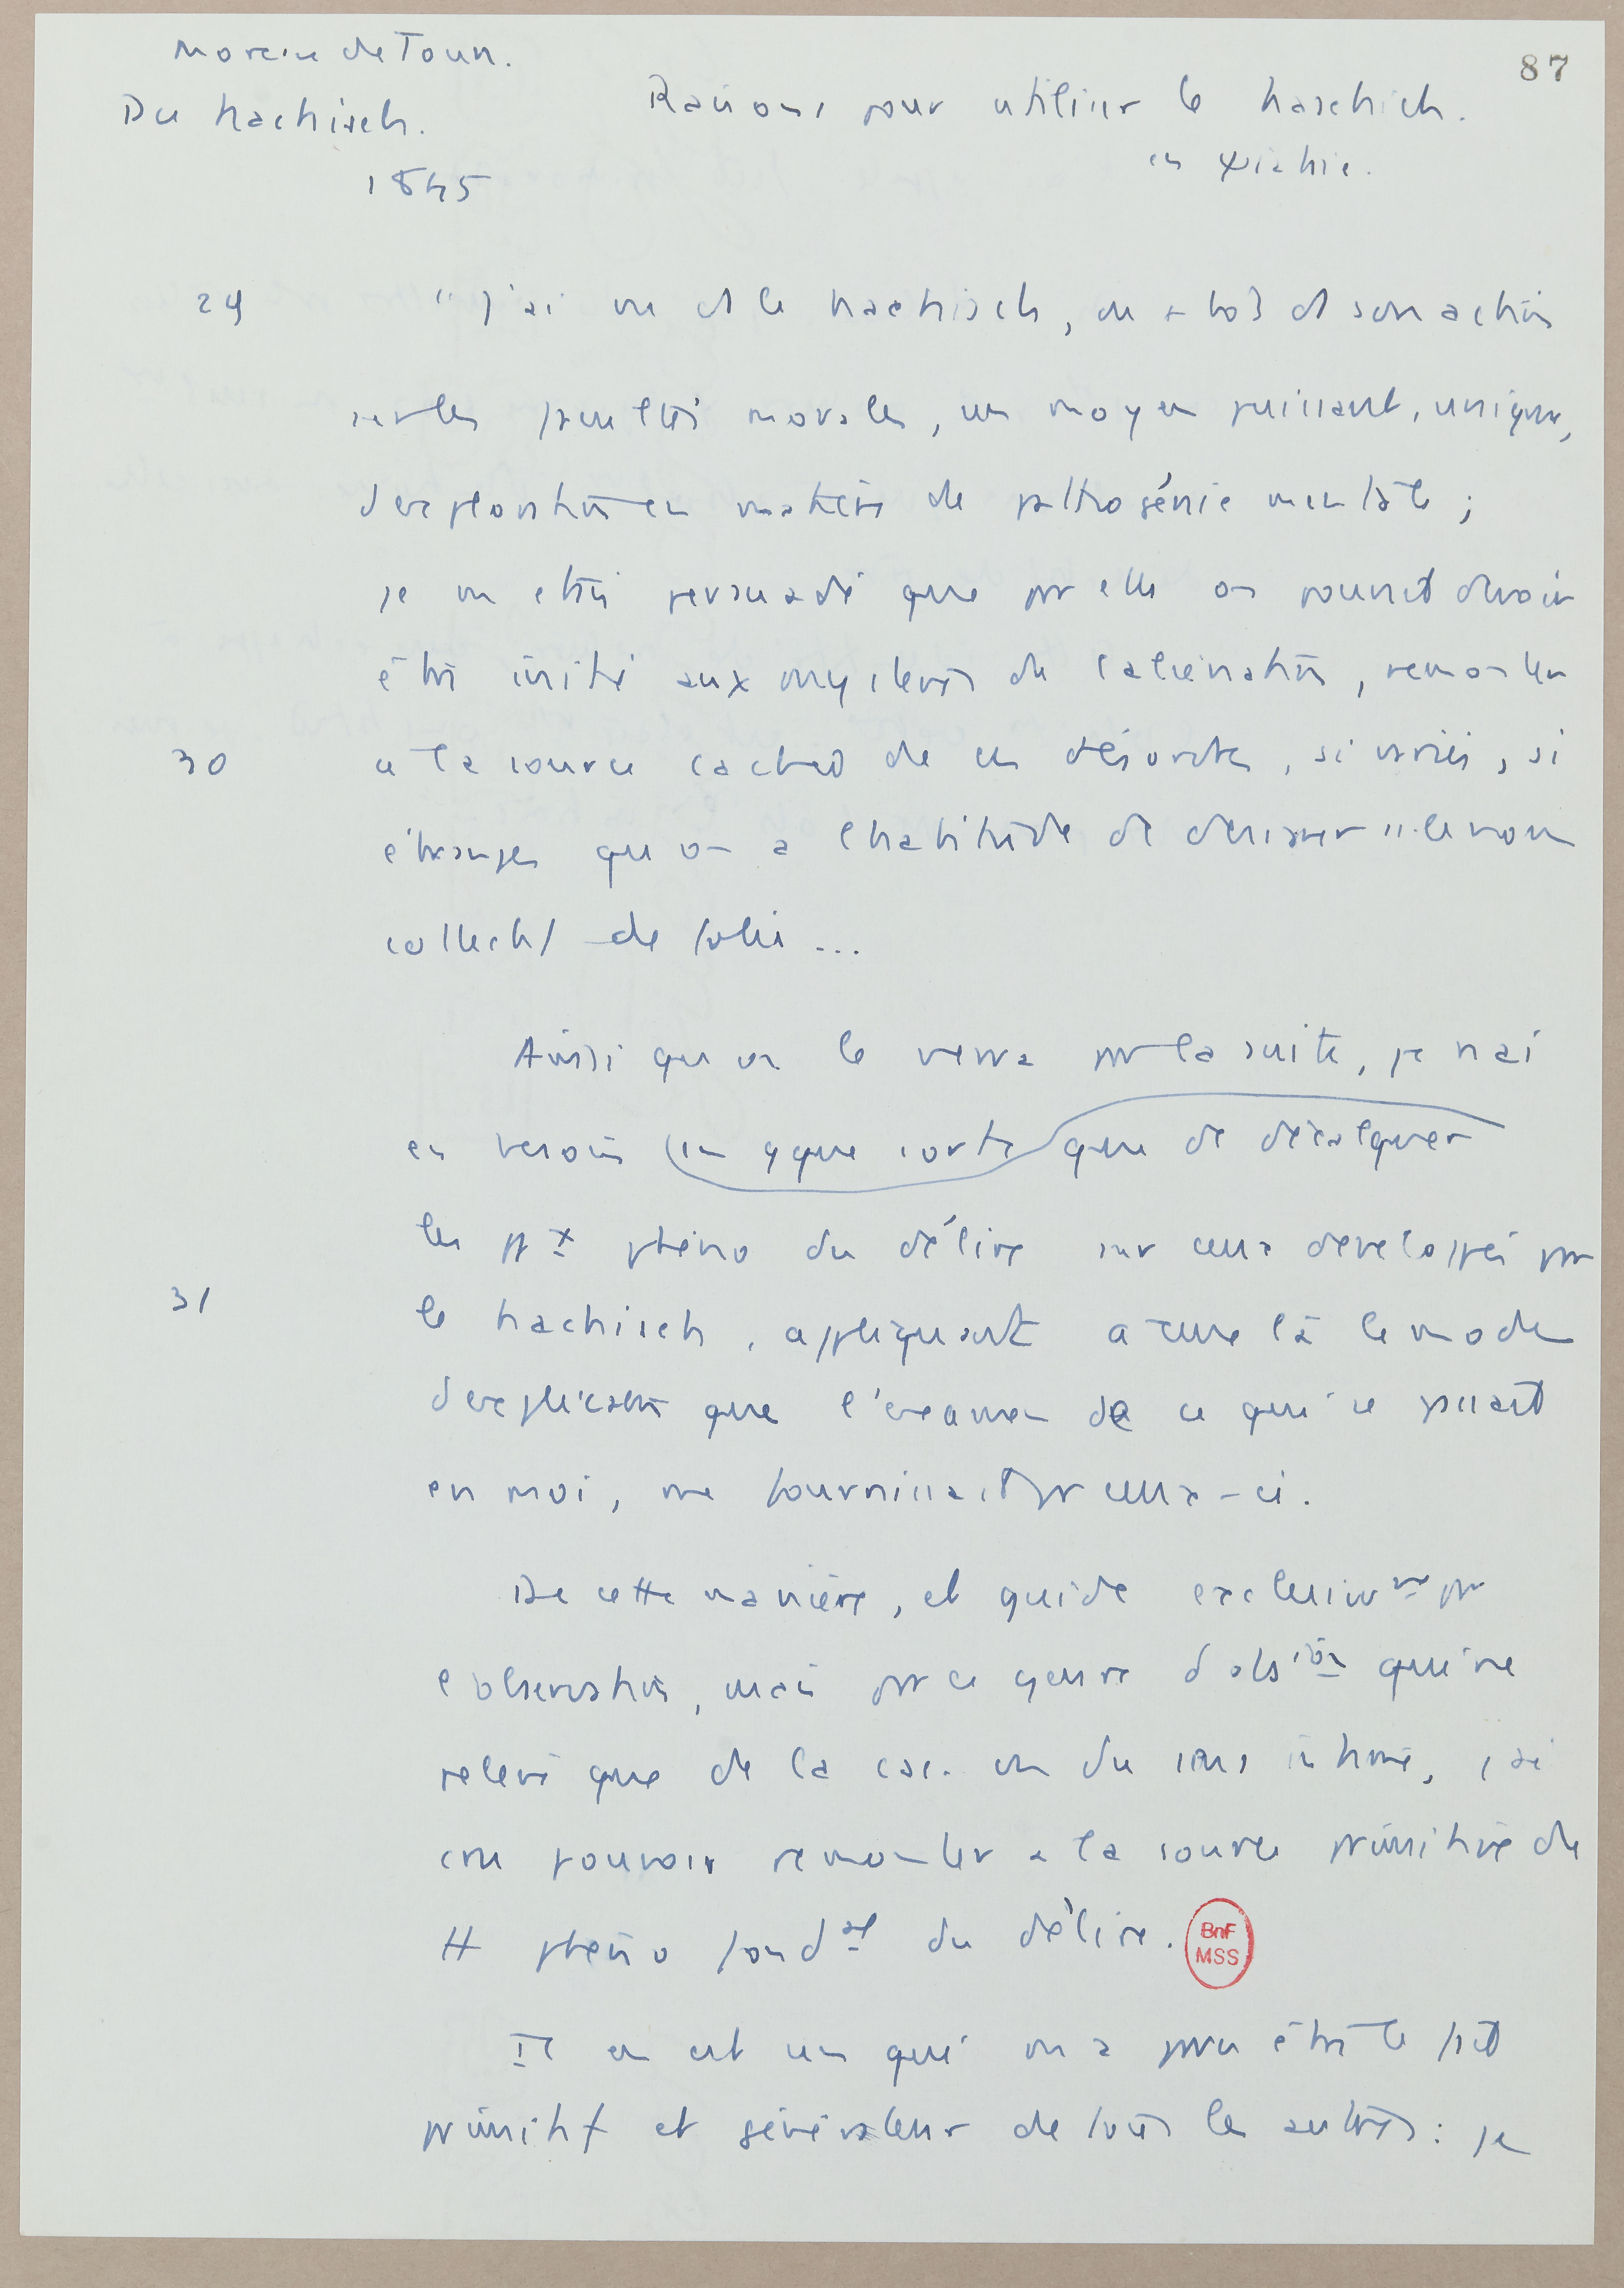 Moreau de Tours.
87
Du hachisch.
Raisons pour utiliser le haschich.
en ψiatrie.
1845
29 "J'ai vu ds le hachisch, ou + tôt ds son action
sur les facultés morales, un moyen puissant, unique,
d'exploration en matière de pathogénie mentale ;
je m'étais persuadé que par elle on pouvait devoir
être initié aux mystères de l'aliénation, remonter
30 à la source cachée de ces désordres, si variés, si
étranges qu'on a l'habitude de désigner ss le nom
collectif de folie ...
Ainsi qu'on le verra par la suite, je n'ai
eu besoin (en qque sorte) que de décalquer
les ppx phéno du délire sur ceux développés par
31 le hachisch, appliquant à ceux là le mode
d'explication que l'examen de ce qui se passait
en moi, me fournissait pr ceux-ci.
De cette manière, et guidé exclusivmt par
l'observation, mais par ce genre d'obsion qui ne
relève que de la csc. ou du sens intime, j'ai
cru pouvoir remonter à la source primitive de
tt phéno fondal du délire.
BnF
MSS
Il en est un qui m'a paru être le fait
primitif et générateur de tous les autres : je